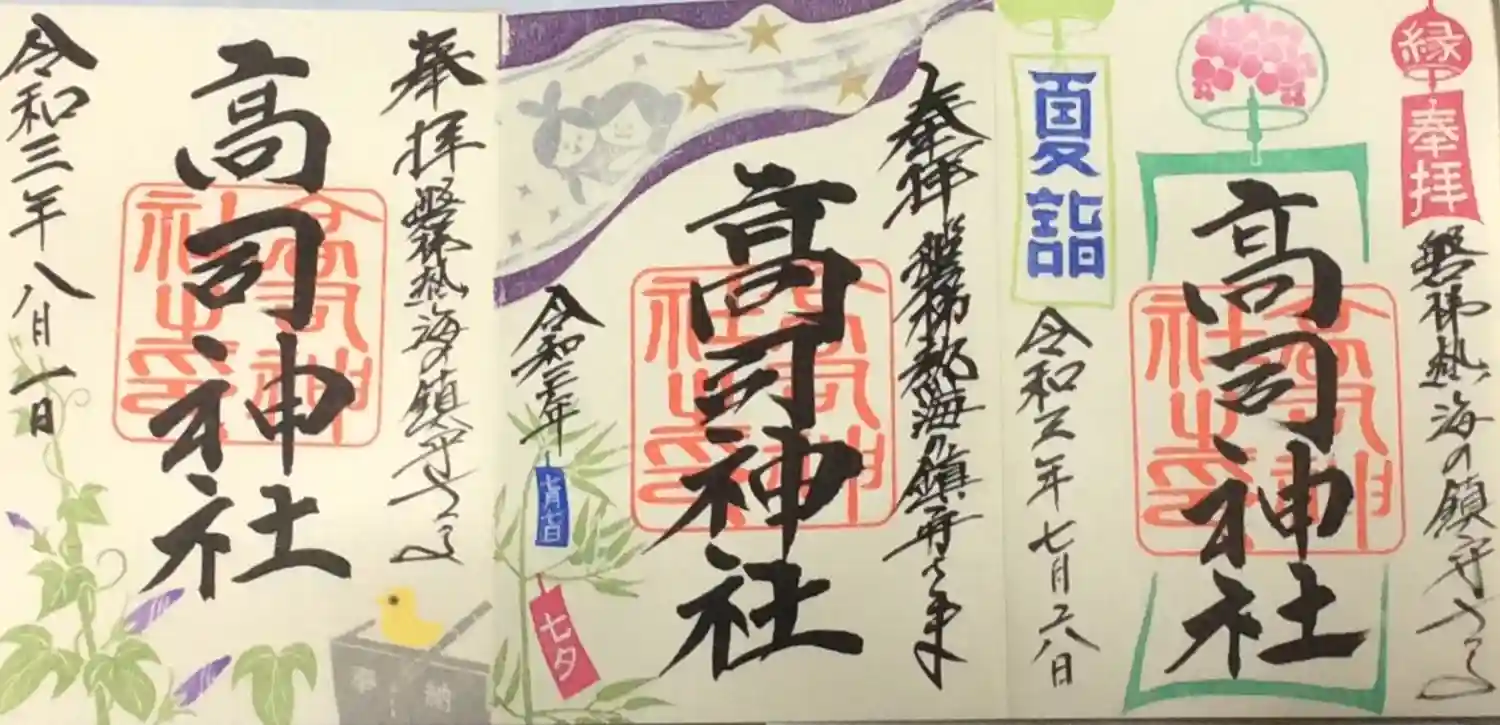 奉拝 磐梯熱海の鎮守さま
高司神社
高司神社之印
令和三年八月一日
奉納
奉拝 磐梯熱海の鎮守さま
高司神社
高司神社之印
令和三年
七月七日
七夕
縁
奉拝
磐梯熱海の鎮守さま
高司神社
高司神社之印
夏詣
令和三年七月二八日